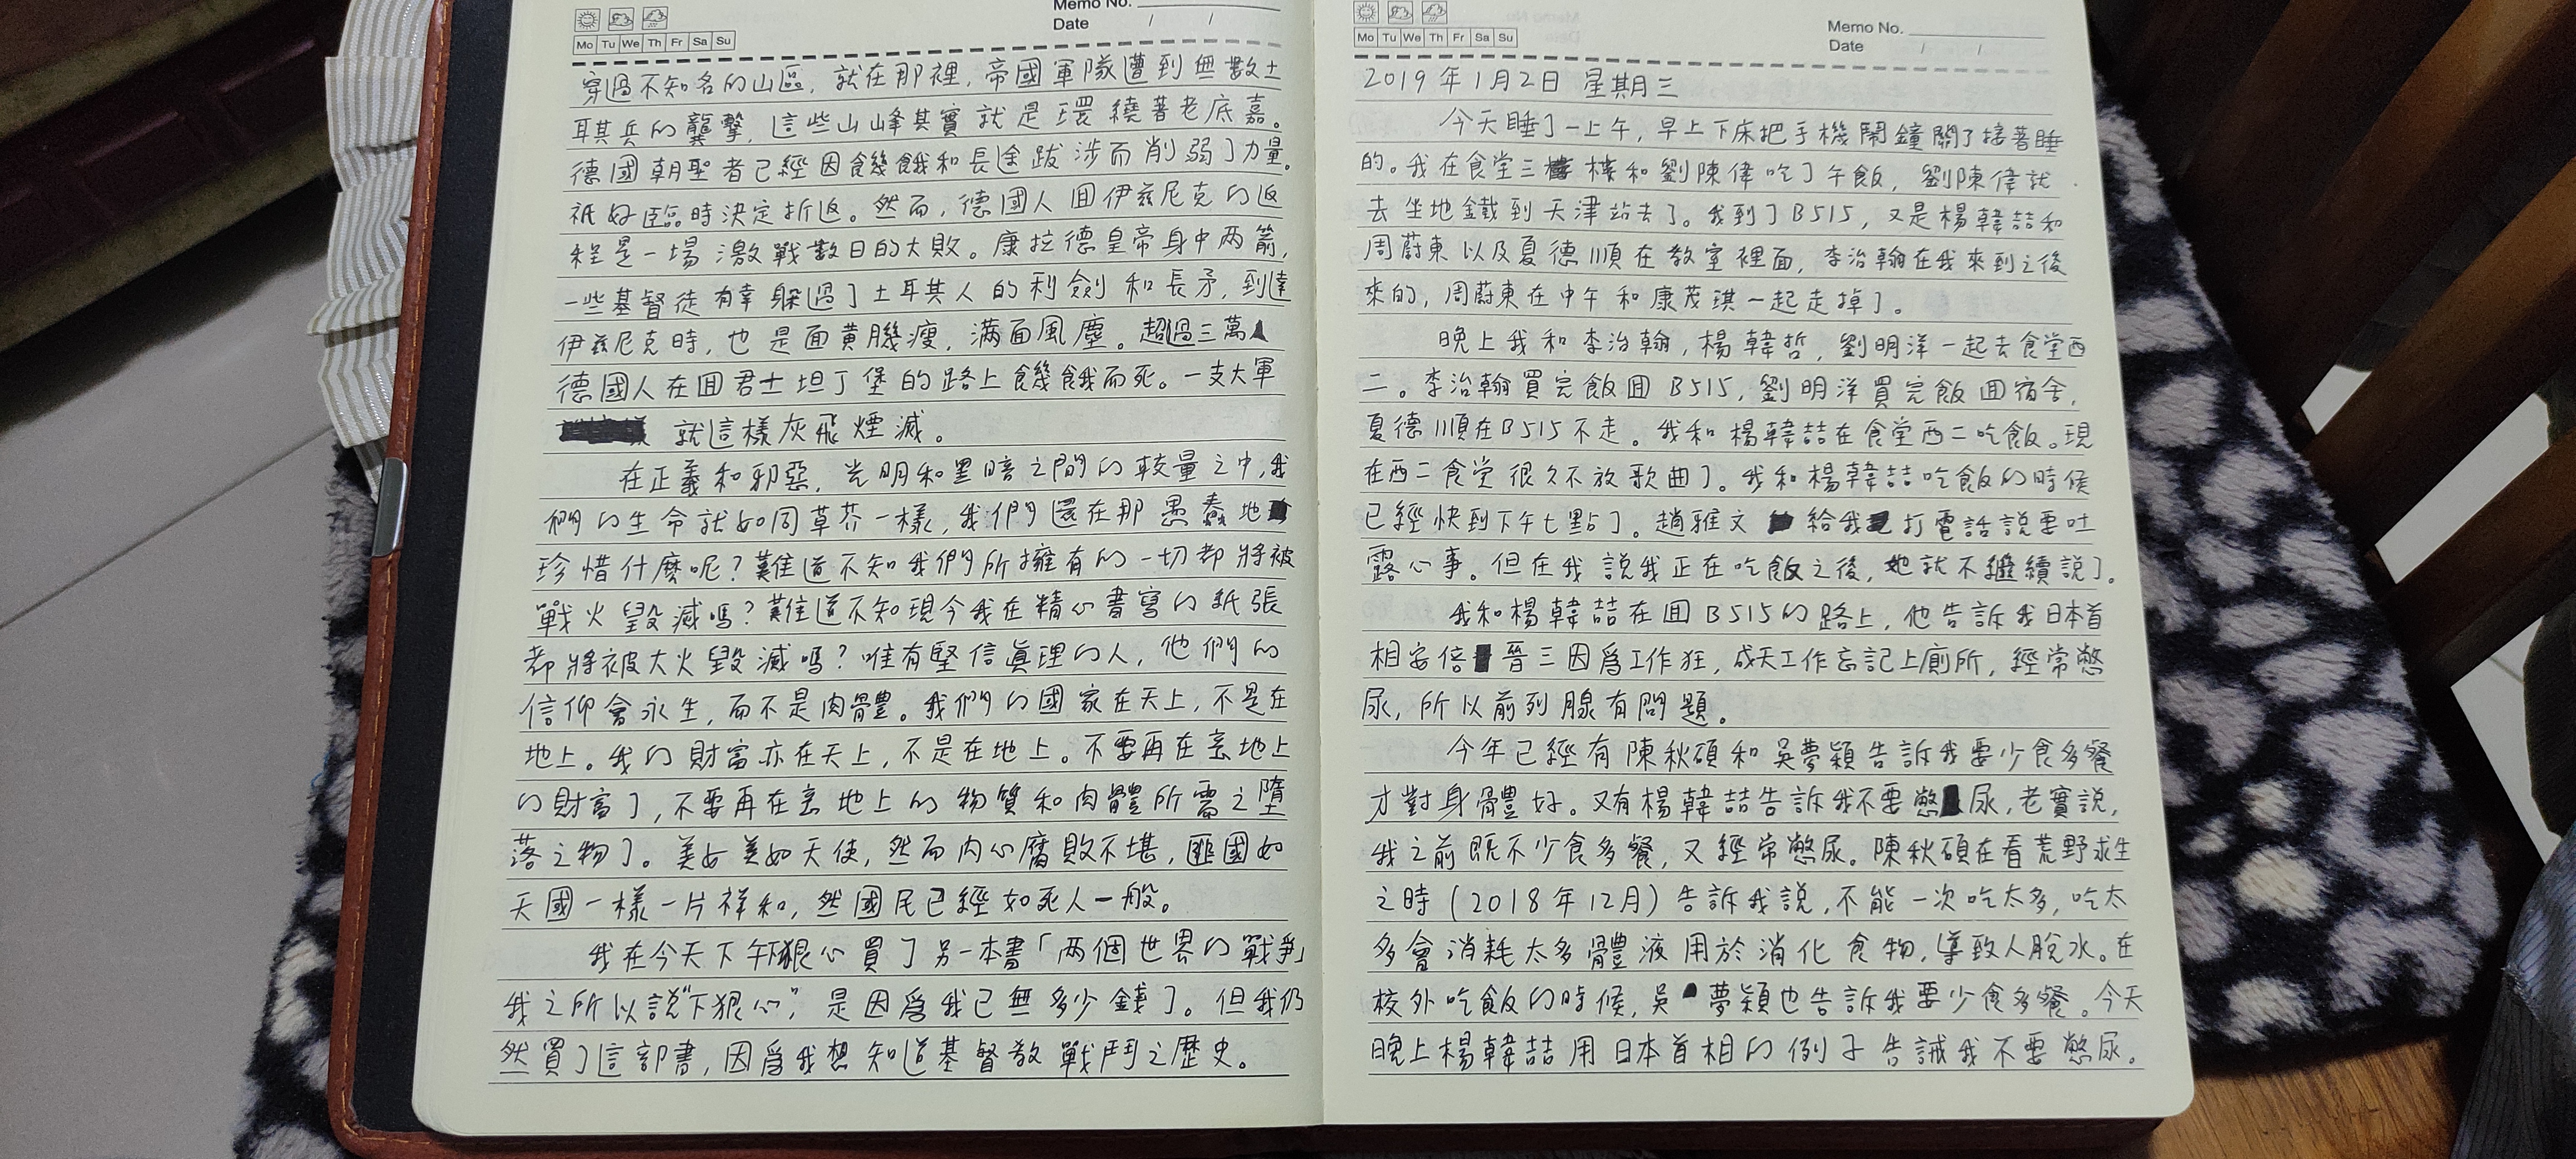 Memo No.
Date / /
Mo Tu We Th Fr Sa Su
穿過不知名的山區，就在那裡，帝國軍隊遭到無數土
耳其兵的襲擊，這些山峰其實就是環繞著老底嘉。
德國朝聖者已經因飢餓和長途跋涉而削弱了力量。
祇好臨時決定折返。然而，德國人回伊茲尼克的返
程是一場激戰數日的大敗。康拉德皇帝身中两箭，
一些基督徒有幸躲過了土耳其人的利劍和長矛，到達
伊茲尼克時，也是面黃肌瘦，滿面風塵。超過三萬
德國人在回君士坦丁堡的路上饑餓而死。一支大軍
就這樣灰飛煙滅。
在正義和邪惡，光明和黑暗之間的較量之中，我
們的生命就如同草芥一樣，我們還在那愚蠢地
珍惜什麼呢？難道不知我們所擁有的一切都將被
戰火毀滅嗎？難道不知現今我在精心書寫的紙張
都將被大火毀滅嗎？唯有堅信真理的人，他們的
信仰會永生，而不是肉體。我們的國家在天上，不是在
地上。我的財富亦在天上，不是在地上。不要再在意地上
的財富了，不要再在意地上的物質和肉體所需之墮
落之物了。美女美如天使，然而内心腐敗不堪，匪國如
天國一樣一片祥和，然國民已經如死人一般。
我在今天下午下狠心買了另一本書「两個世界的戰爭」
我之所以說“下狠心”，是因爲我已無多少錢了。但我仍
然買了這部書，因爲我想知道基督教戰鬥之歷史。
Mo Tu We Th Fr Sa Su
Memo No.
Date / /
2019年1月2日 星期三
今天睡了一上午，早上下床把手機鬧鐘關了接著睡
的。我在食堂三樓和劉陳偉吃了午飯，劉陳偉就
去坐地鐵到天津站去了。我到了B515，又是楊韓喆和
周蔚東以及夏德順在教室裡面，李治翰在我來到之後
來的，周蔚東在中午和康茂琪一起走掉了。
晚上我和李治翰，楊韓哲，劉明洋一起去食堂西
二。李治翰買完飯回B515，劉明洋買完飯回宿舍，
夏德順在B515不走。我和楊韓喆在食堂西二吃飯。現
在西二食堂很久不放歌曲了。我和楊韓喆吃飯的時候
已經快到下午七點了。趙雅文給我打電話說要吐
露心事。但在我說我正在吃飯之後，她就不繼續說了。
我和楊韓喆在回B515的路上，他告訴我日本首
相安倍晉三因爲工作狂，成天工作忘記上廁所，經常憋
尿，所以前列腺有問題。
今年已經有陳秋碩和吳夢穎告訴我要少食多餐
才對身體好。又有楊韓喆告訴我不要憋尿，老實說，
我之前既不少食多餐，又經常憋尿。陳秋碩在看荒野求生
之時（2018年12月）告訴我說，不能一次吃太多，吃太
多會消耗太多體液用於消化食物，導致人脫水。在
校外吃飯的時候，吳夢穎也告訴我要少食多餐。今天
晚上楊韓喆用日本首相的例子告誡我不要憋尿。